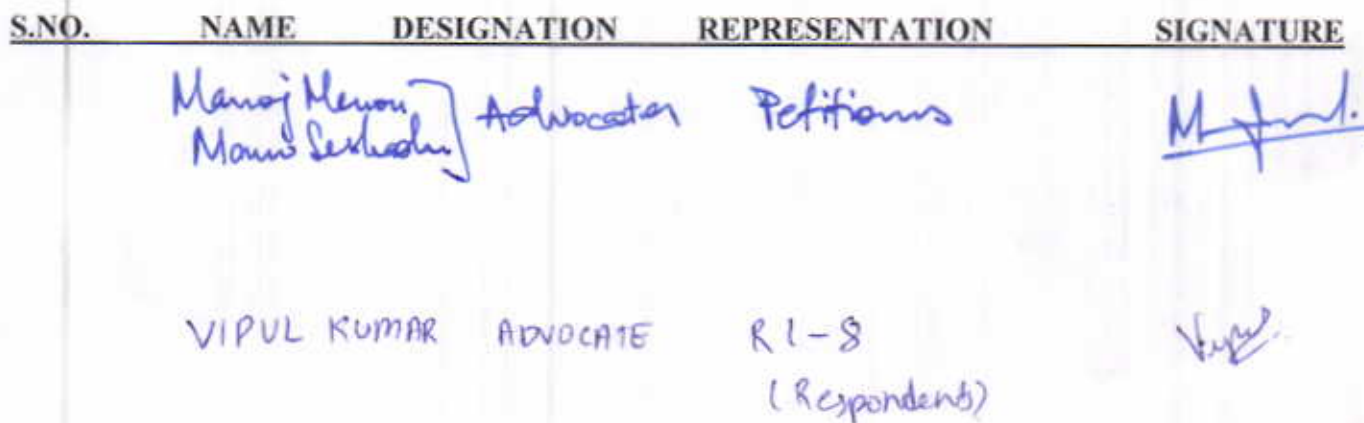 S.NO. NAME DESIGNATION REPRESENTATION SIGNATURE
Manoj Menon
Advocates Petitioners
VIPUL KUMAR ADVOCATE R 1-8
(Respondents)